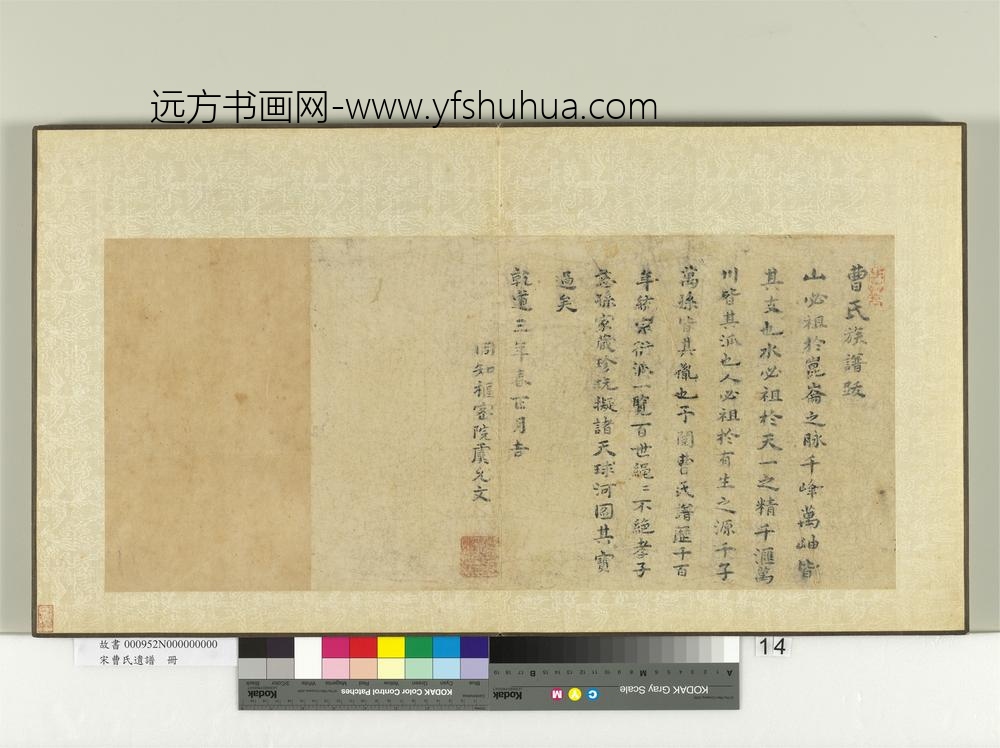 远方书画网-www.yfshuhua.com
曹氏族譜跋
山必祖於崑崙之脉千峰萬岫皆
其支也水必祖於天一之精千滙萬
川皆其派也人必祖於有生之源千子
萬孫皆其胤也予閲曹氏譜歷千百
年紋宗衍派一覽百世繩〻不絶孝子
慈孫家藏珍玩擬諸天球河圖其寶
過矣
乾道三年春正月吉
同知樞密院虞允文
故書 000952N000000000
宋曹氏遺譜 冊
14
Kodak
KODAK Color Control Patches
Blue Cyan Green Yellow Red Magenta White 3/Color Black
Kodak
KODAK Gray Scale
C Y M
A 1 2 3 4 5 6 M 8 9 10 11 12 13 14 15 B 17 18 19